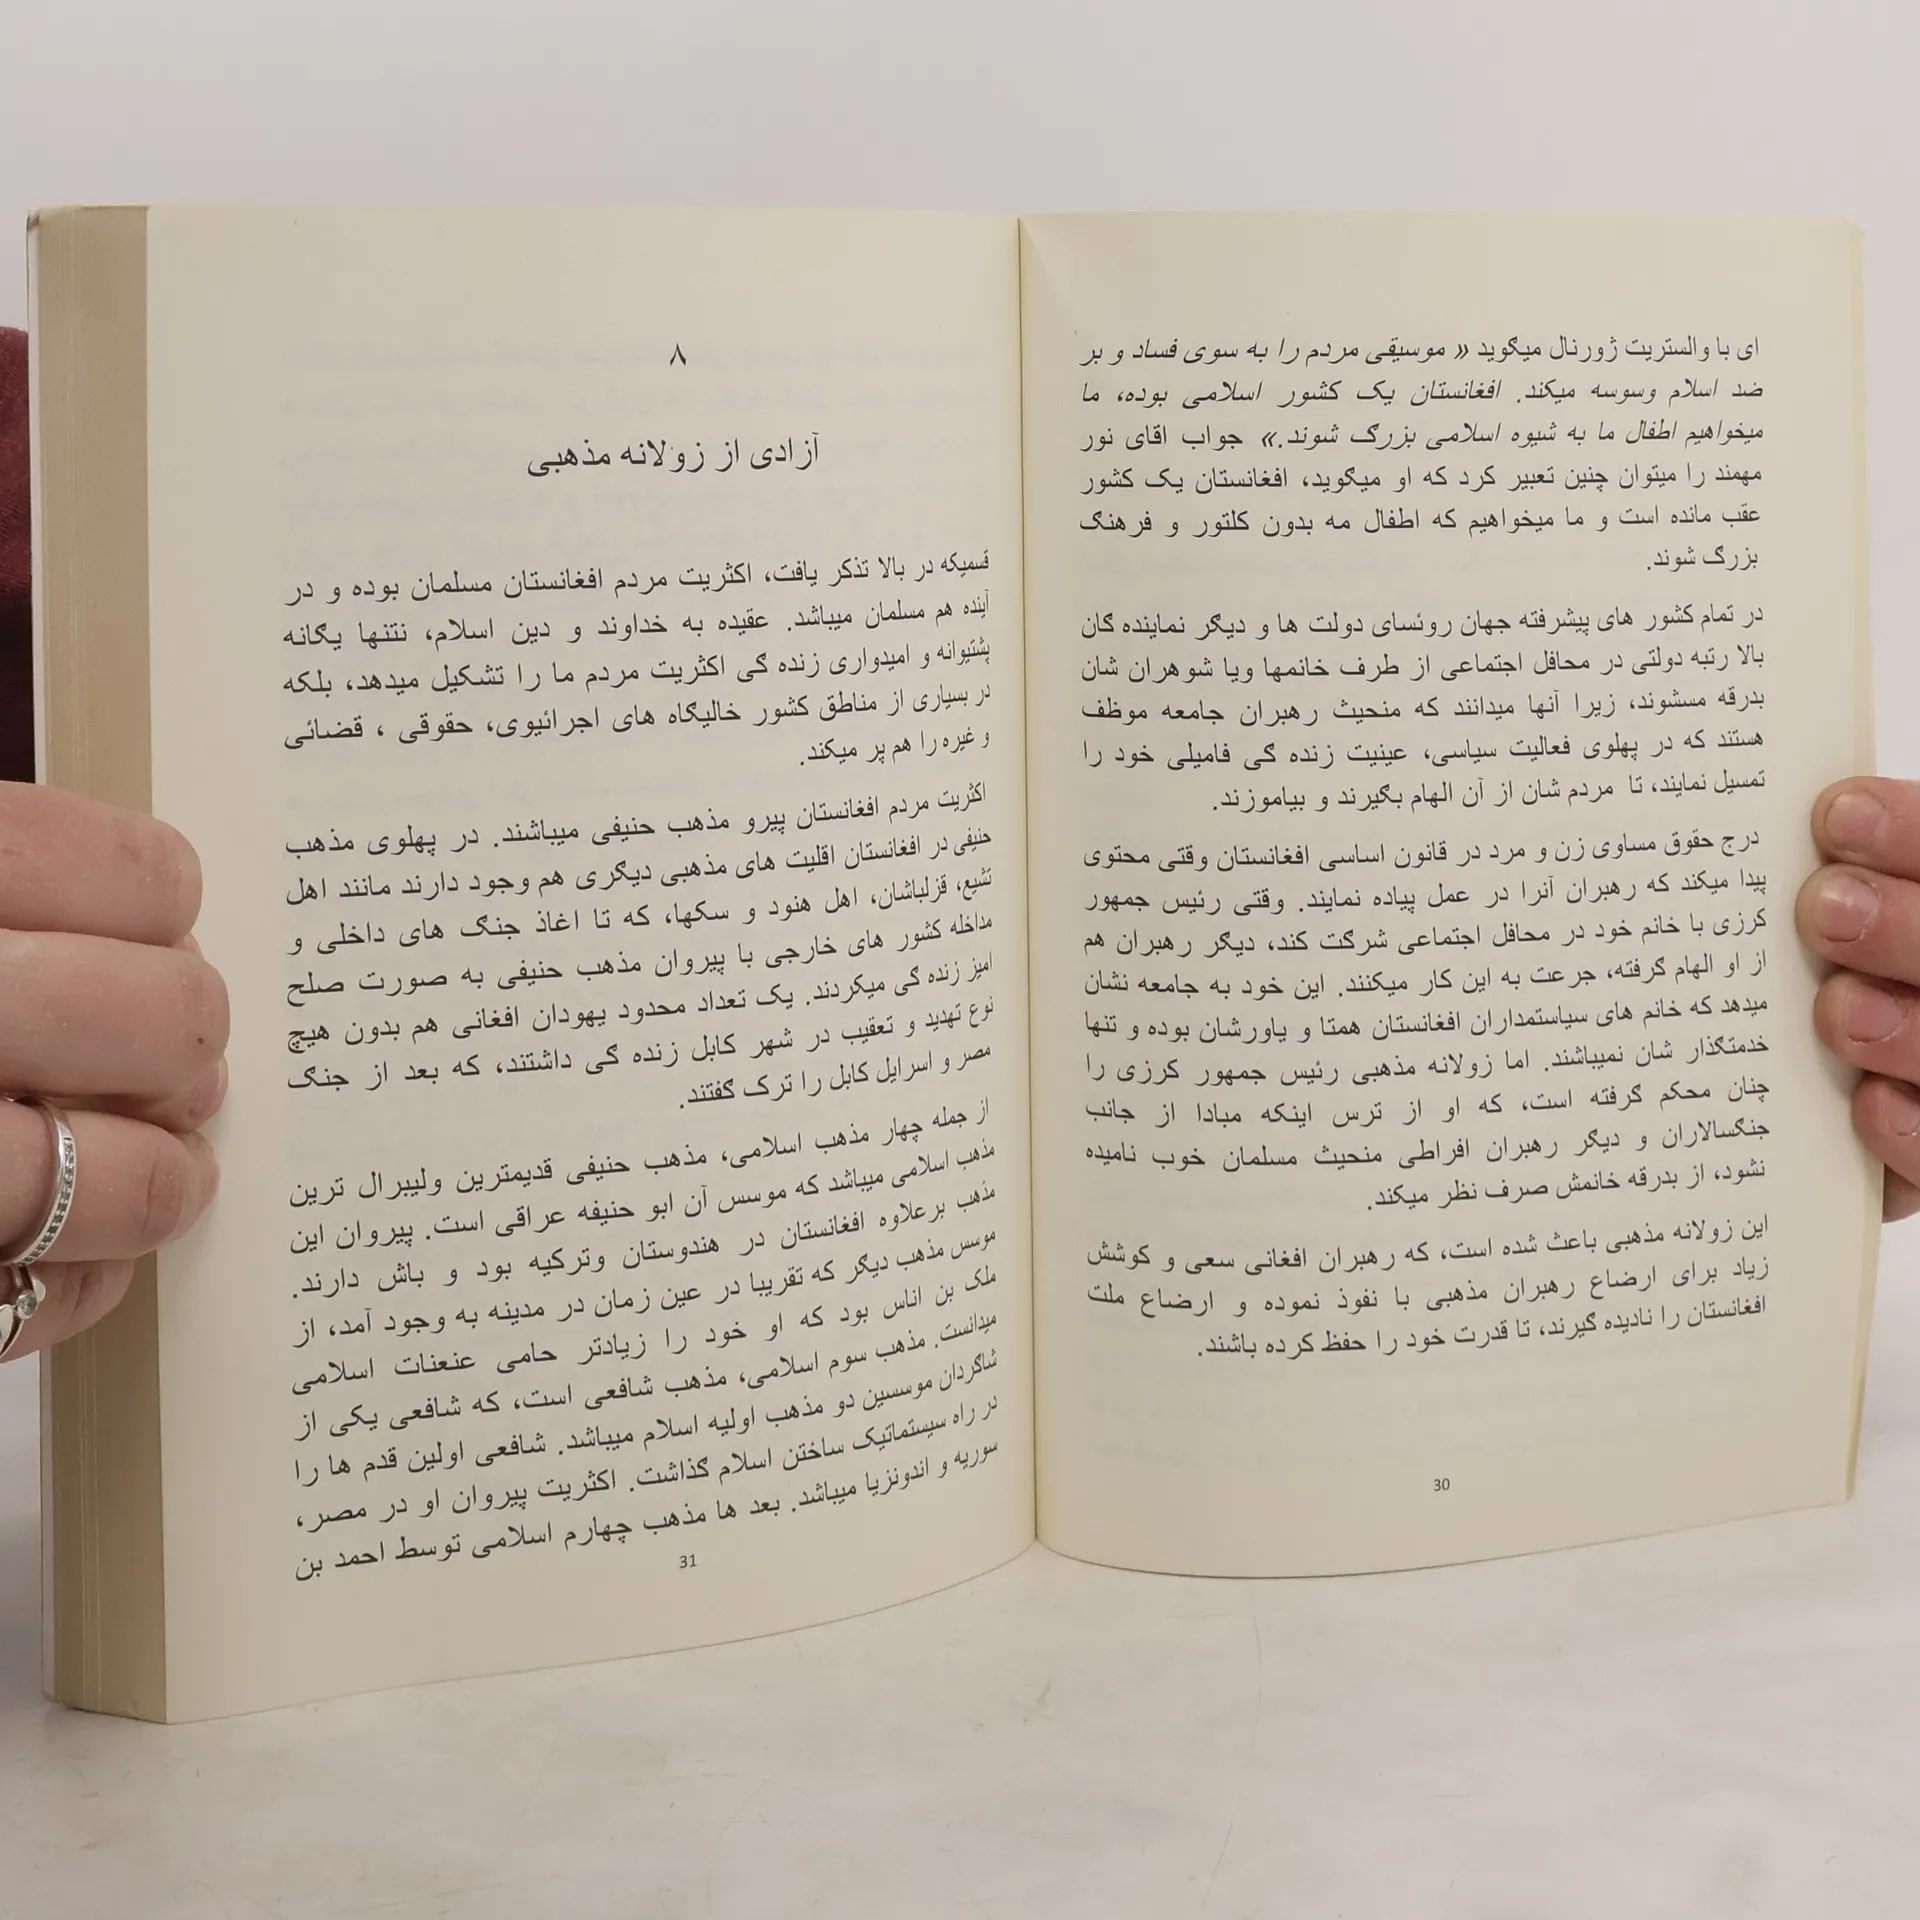 ای با والستریت ژورنال میگوید « موسیقی مردم را به سوی فساد و بر
ضد اسلام وسوسه میکند. افغانستان یک کشور اسلامی بوده، ما
میخواهیم اطفال ما به شیوه اسلامی بزرگ شوند.» جواب اقای نور
مهمند را میتوان چنین تعبیر کرد که او میگوید، افغانستان یک کشور
عقب مانده است و ما میخواهیم که اطفال مه بدون کلتور و فرهنگ
بزرگ شوند.
در تمام کشور های پیشرفته جهان روئسای دولت ها و دیگر نماینده گان
بالا رتبه دولتی در محافل اجتماعی از طرف خانمها ویا شوهران شان
بدرقه مسشوند، زیرا آنها میدانند که منحیث رهبران جامعه موظف
هستند که در پهلوی فعالیت سیاسی، عینیت زنده گی فامیلی خود را
تمسیل نمایند، تا مردم شان از آن الهام بگیرند و بیاموزند.
درج حقوق مساوی زن و مرد در قانون اساسی افغانستان وقتی محتوی
پیدا میکند که رهبران آنرا در عمل پیاده نمایند. وقتی رئیس جمهور
کرزی با خانم خود در محافل اجتماعی شرگت کند، دیگر رهبران هم
از او الهام گرفته، جرعت به این کار میکنند. این خود به جامعه نشان
میدهد که خانم های سیاستمداران افغانستان همتا و یاورشان بوده و تنها
خدمتگذار شان نمیباشند. اما زولانه مذهبی رئیس جمهور کرزی را
چنان محکم گرفته است، که او از ترس اینکه مبادا از جانب
جنگسالاران و دیگر رهبران افراطی منحیث مسلمان خوب نامیده
نشود، از بدرقه خانمش صرف نظر میکند.
این زولانه مذهبی باعث شده است، که رهبران افغانی سعی و کوشش
زیاد برای ارضاع رهبران مذهبی با نفوذ نموده و ارضاع ملت
افغانستان را نادیده گیرند، تا قدرت خود را حفظ کرده باشند.
30
۸
آزادی از زولانه مذهبی
قسمیکه در بالا تذکر یافت، اکثریت مردم افغانستان مسلمان بوده و در
آینده هم مسلمان میباشد. عقیده به خداوند و دین اسلام، نتنها یگانه
پشتیوانه و امیدواری زنده گی اکثریت مردم ما را تشکیل میدهد، بلکه
در بسیاری از مناطق کشور خالیگاه های اجرائیوی، حقوقی ، قضائی
و غیره را هم پر میکند.
اکثریت مردم افغانستان پیرو مذهب حنیفی میباشند. در پهلوی مذهب
حنیفی در افغانستان اقلیت های مذهبی دیگری هم وجود دارند مانند اهل
تشیع، قزلباشان، اهل هنود و سکها، که تا اغاذ جنگ های داخلی و
مداخله کشور های خارجی با پیروان مذهب حنیفی به صورت صلح
امیز زنده گی میکردند. یک تعداد محدود یهودان افغانی هم بدون هیچ
نوع تهدید و تعقیب در شهر کابل زنده گی داشتند، که بعد از جنگ
مصر و اسرایل کابل را ترک گفتند.
از جمله چهار مذهب اسلامی، مذهب حنیفی قدیمترین ولیبرال ترین
مذهب اسلامی میباشد که موسس آن ابو حنیفه عراقی است. پیروان این
مذهب برعلاوه افغانستان در هندوستان وترکیه بود و باش دارند.
موسس مذهب دیگر که تقریبا در عین زمان در مدینه به وجود آمد، از
ملک بن اناس بود که او خود را زیادتر حامی عنعنات اسلامی
میدانست. مذهب سوم اسلامی، مذهب شافعی است، که شافعی یکی از
شاگردان موسسین دو مذهب اولیه اسلام میباشد. شافعی اولین قدم ها را
در راه سیستماتیک ساختن اسلام گذاشت. اکثریت پیروان او در مصر،
سوریه و اندونزیا میباشد. بعد ها مذهب چهارم اسلامی توسط احمد بن
31